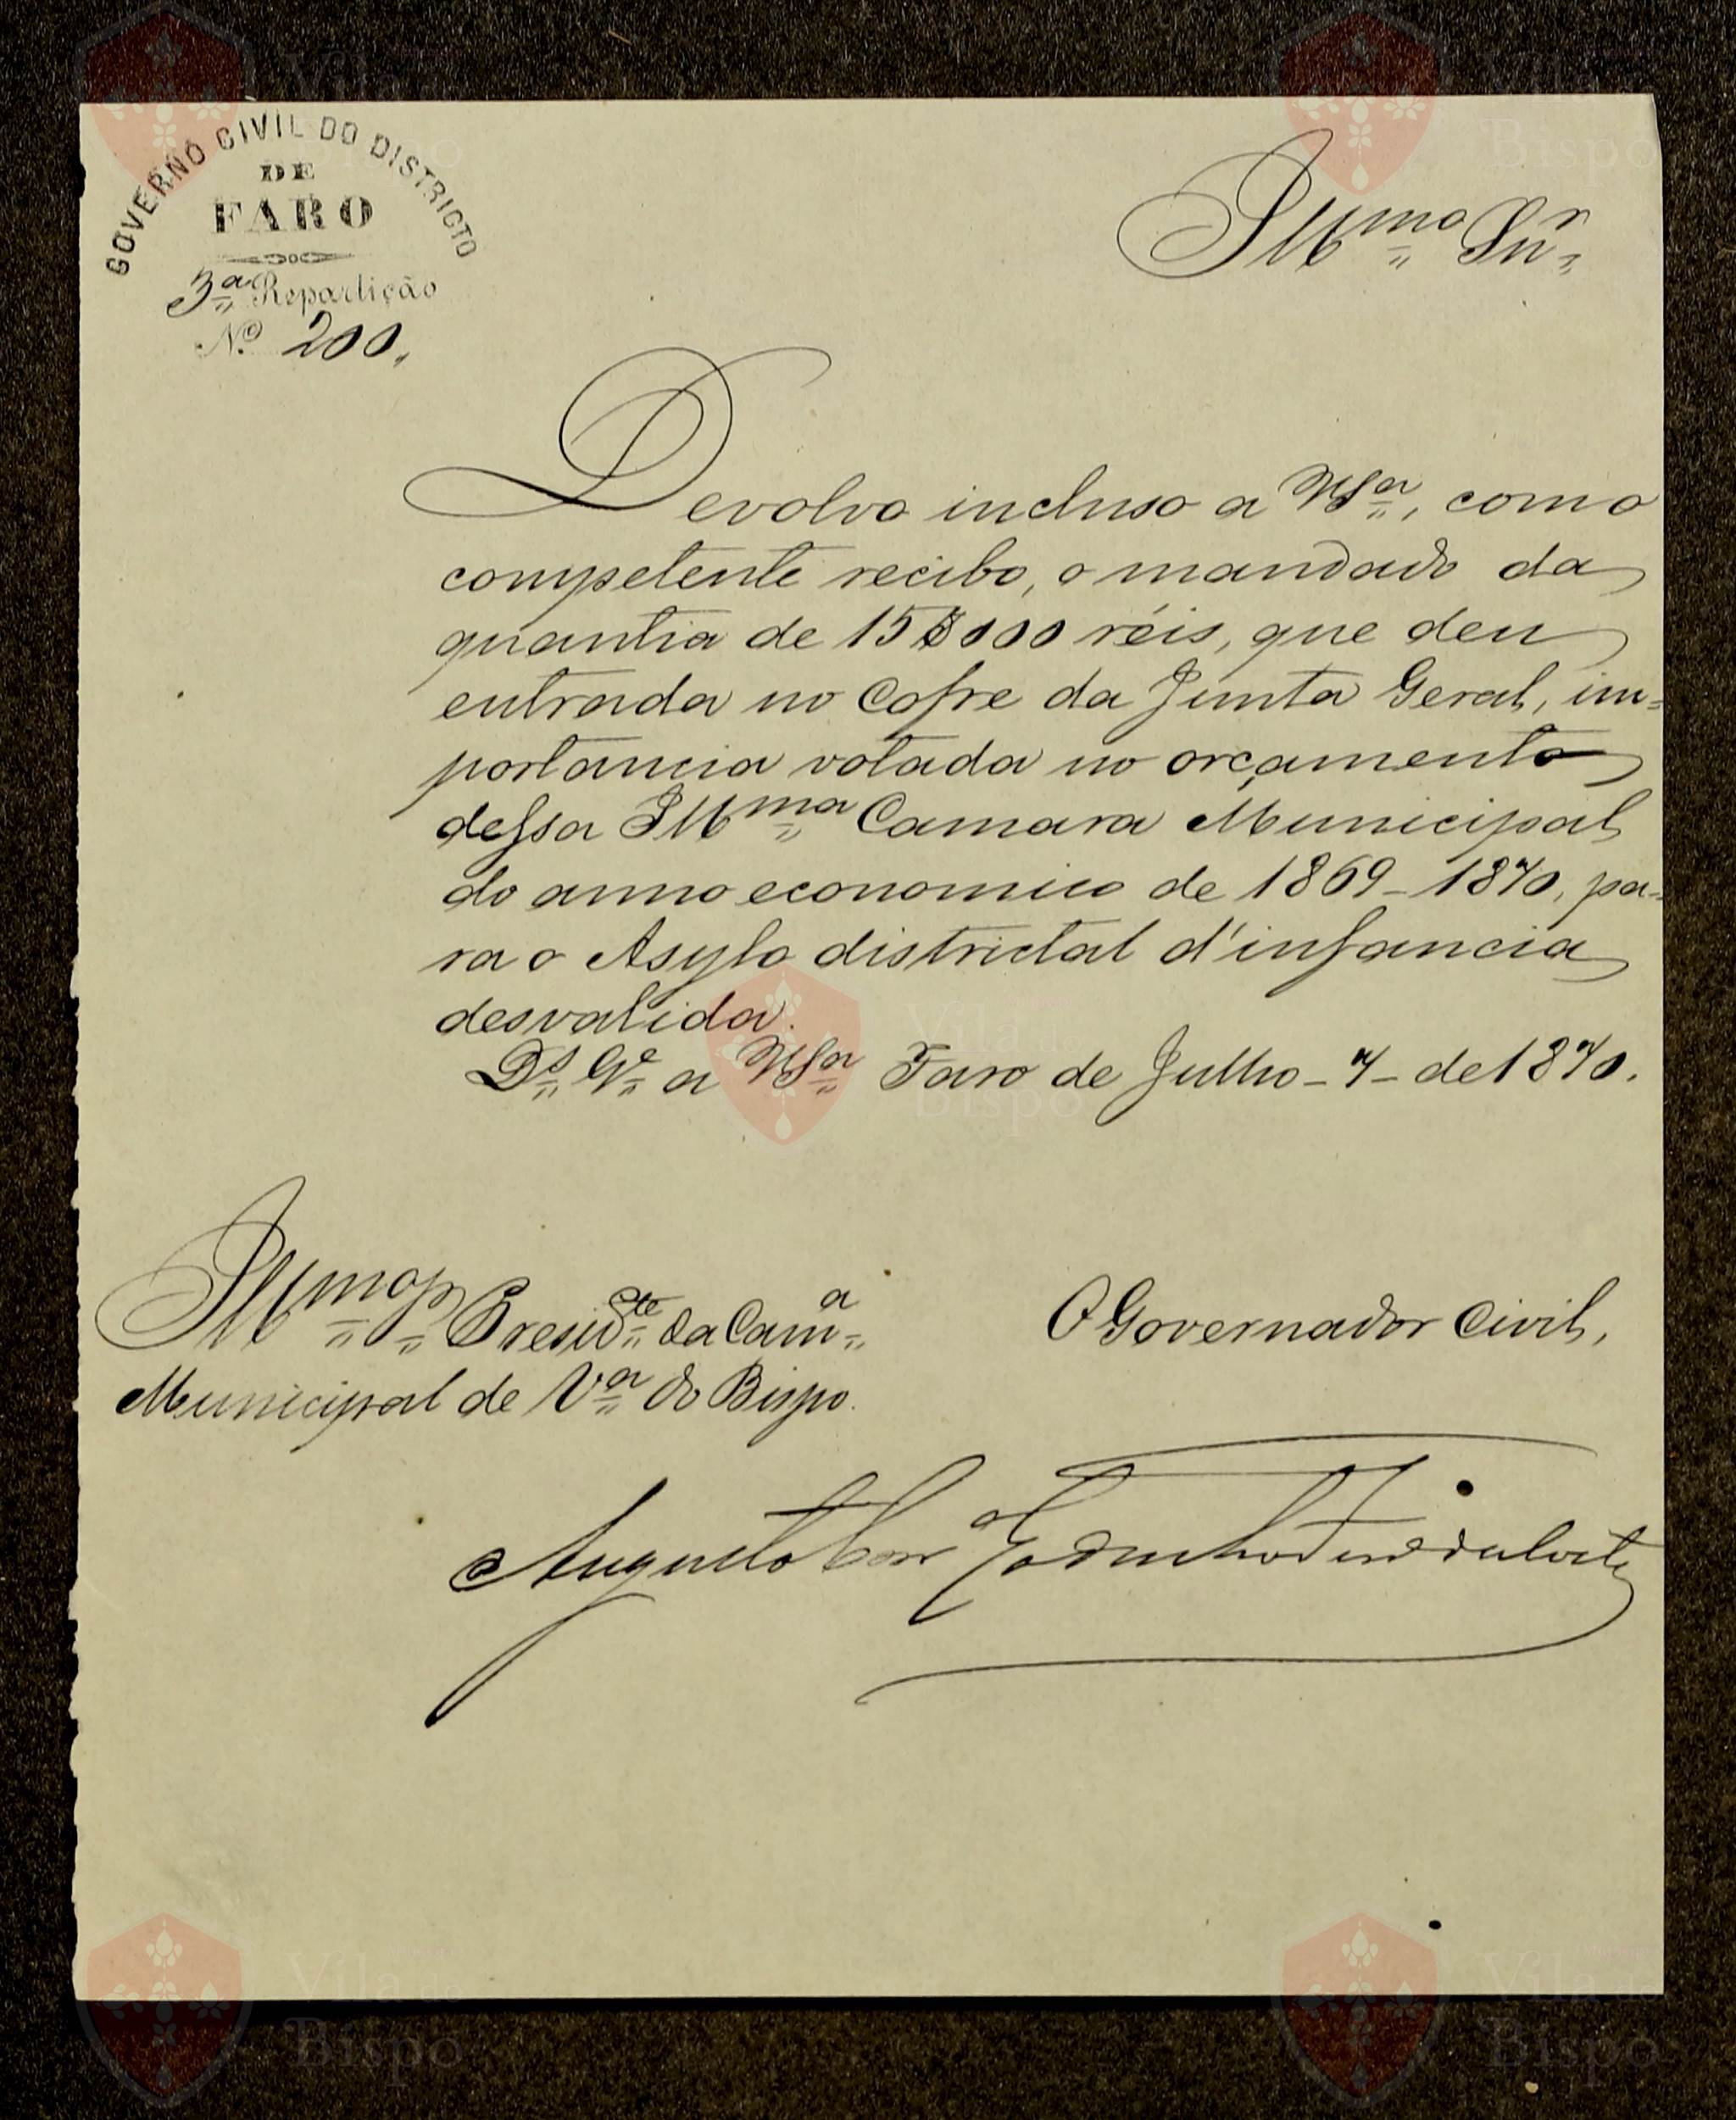 GOVERNO CIVIL DO DISTRICTO
DE
FARO
3ª Repartição
Nº 200.
Illmo Snr
Devolvo incluso a VSª, com o
competente recibo, o mandado da
quantia de 15$000 réis, que deu
entrada no Cofre da Junta Geral, im=
portancia votada no orçamento
dessa Illma Camara Municipal
do anno economico de 1869-1870, pa-
ra o Asylo districtal d'infancia
desvalida.
Ds Ge a VSª Faro de Julho-7-de 1870.
Illmo Sr Presidte da Camª
Municipal de Vª do Bispo.
O Governador Civil,
Augusto
Vila do
Bispo